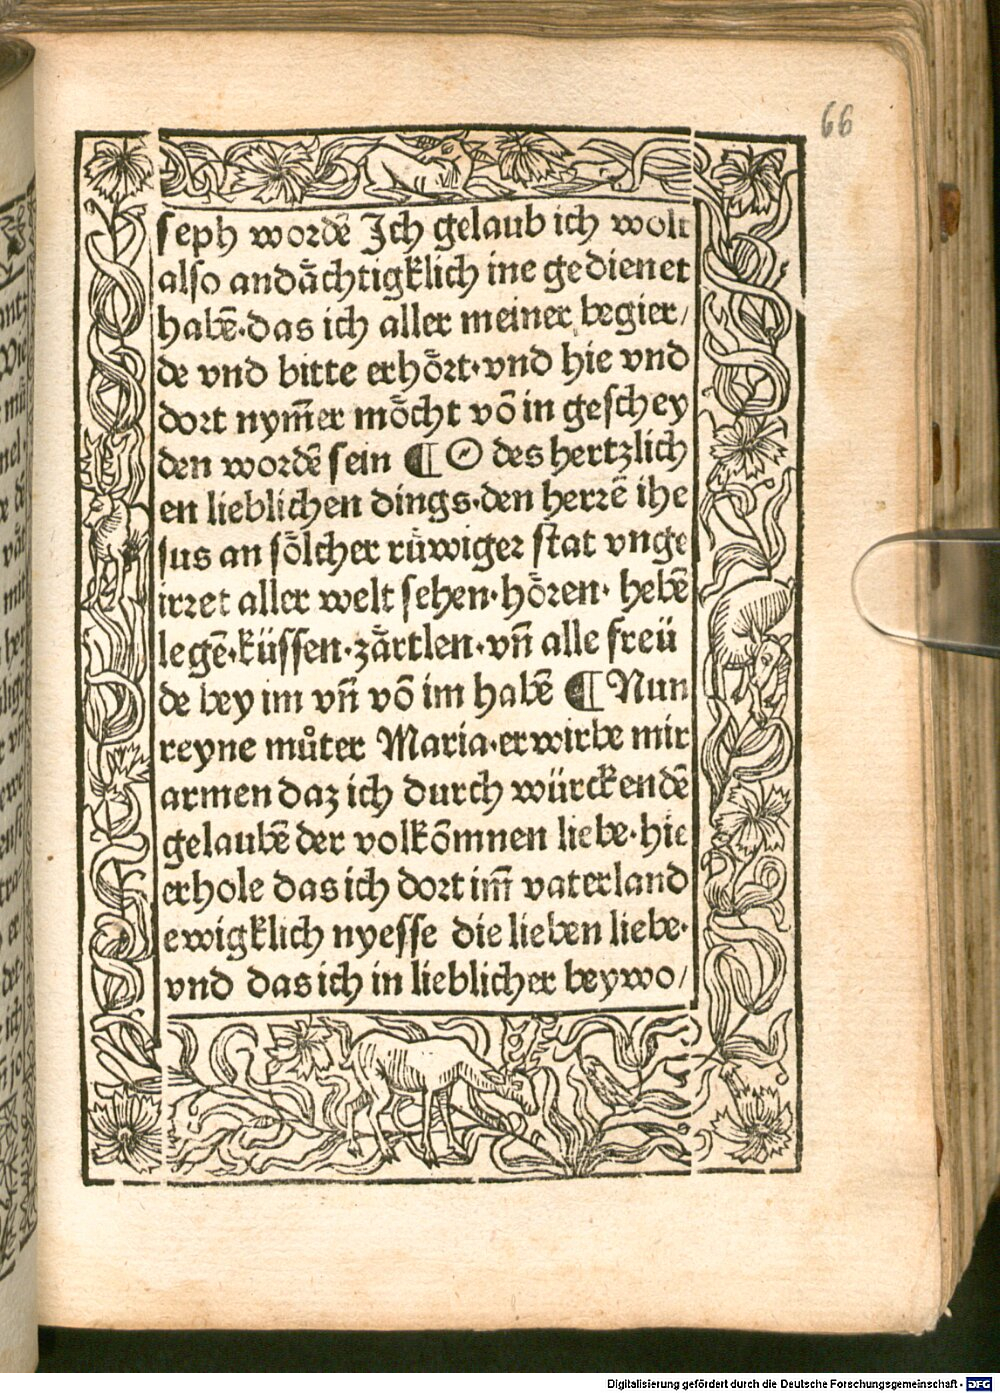 66
seph wordē Ich gelaub ich wolt
also andåchtigklich ine gedienet
habē·das ich aller meiner begier/
de vnd bitte erho᷑rt·vnd hie vnd
dort nym̄er mo᷑cht vō in geschey
den wordē sein ¶ O des hertzlich
en lieblichen dings·den herrē ihe
sus an so᷑lcher ru᷑wiger stat vnge
irret aller welt sehen·ho᷑ren· hebē
legē·küssen·zårtlen·vn̄ alle freü
de bey im vn̄ vō im habē ¶ Nun
reyne můter Maria·erwirbe mir
armen daz ich durch würckendē
gelaubē der volkōmnen liebe·hie
erhole das ich dort im̄ vaterland
ewigklich nyesse die lieben liebe·
vnd das ich in lieblicher beywo/
Digitalisierung gefördert durch die Deutsche Forschungsgemeinschaft - DFG